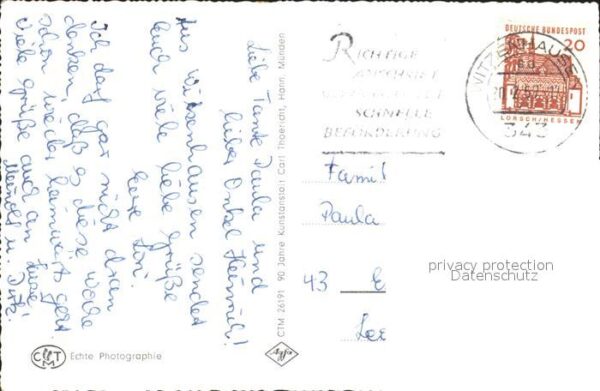 Liebe Tante Paula und
lieber Onkel Heinrich!
Aus Witzenhausen sendet
Euch viele liebe Grüße
Eure
Ich darf gar nicht dran
denken, daß es diese Woche
schon wieder heimwärts geht.
Viele Grüße auch an
u.
CTM 26191 90 Jahre Kunstanstalt Carl Thoericht, Hann. Münden
Agfa
CTM Echte Photographie
RICHTIGE
ANSCHRIFT
SCHNELLE
BEFÖRDERUNG
WITZENHAUSE
343
DEUTSCHE BUNDESPOST
20
LORSCH/HESSEN
Famil
Paula
43 E
privacy protection
Datenschutz